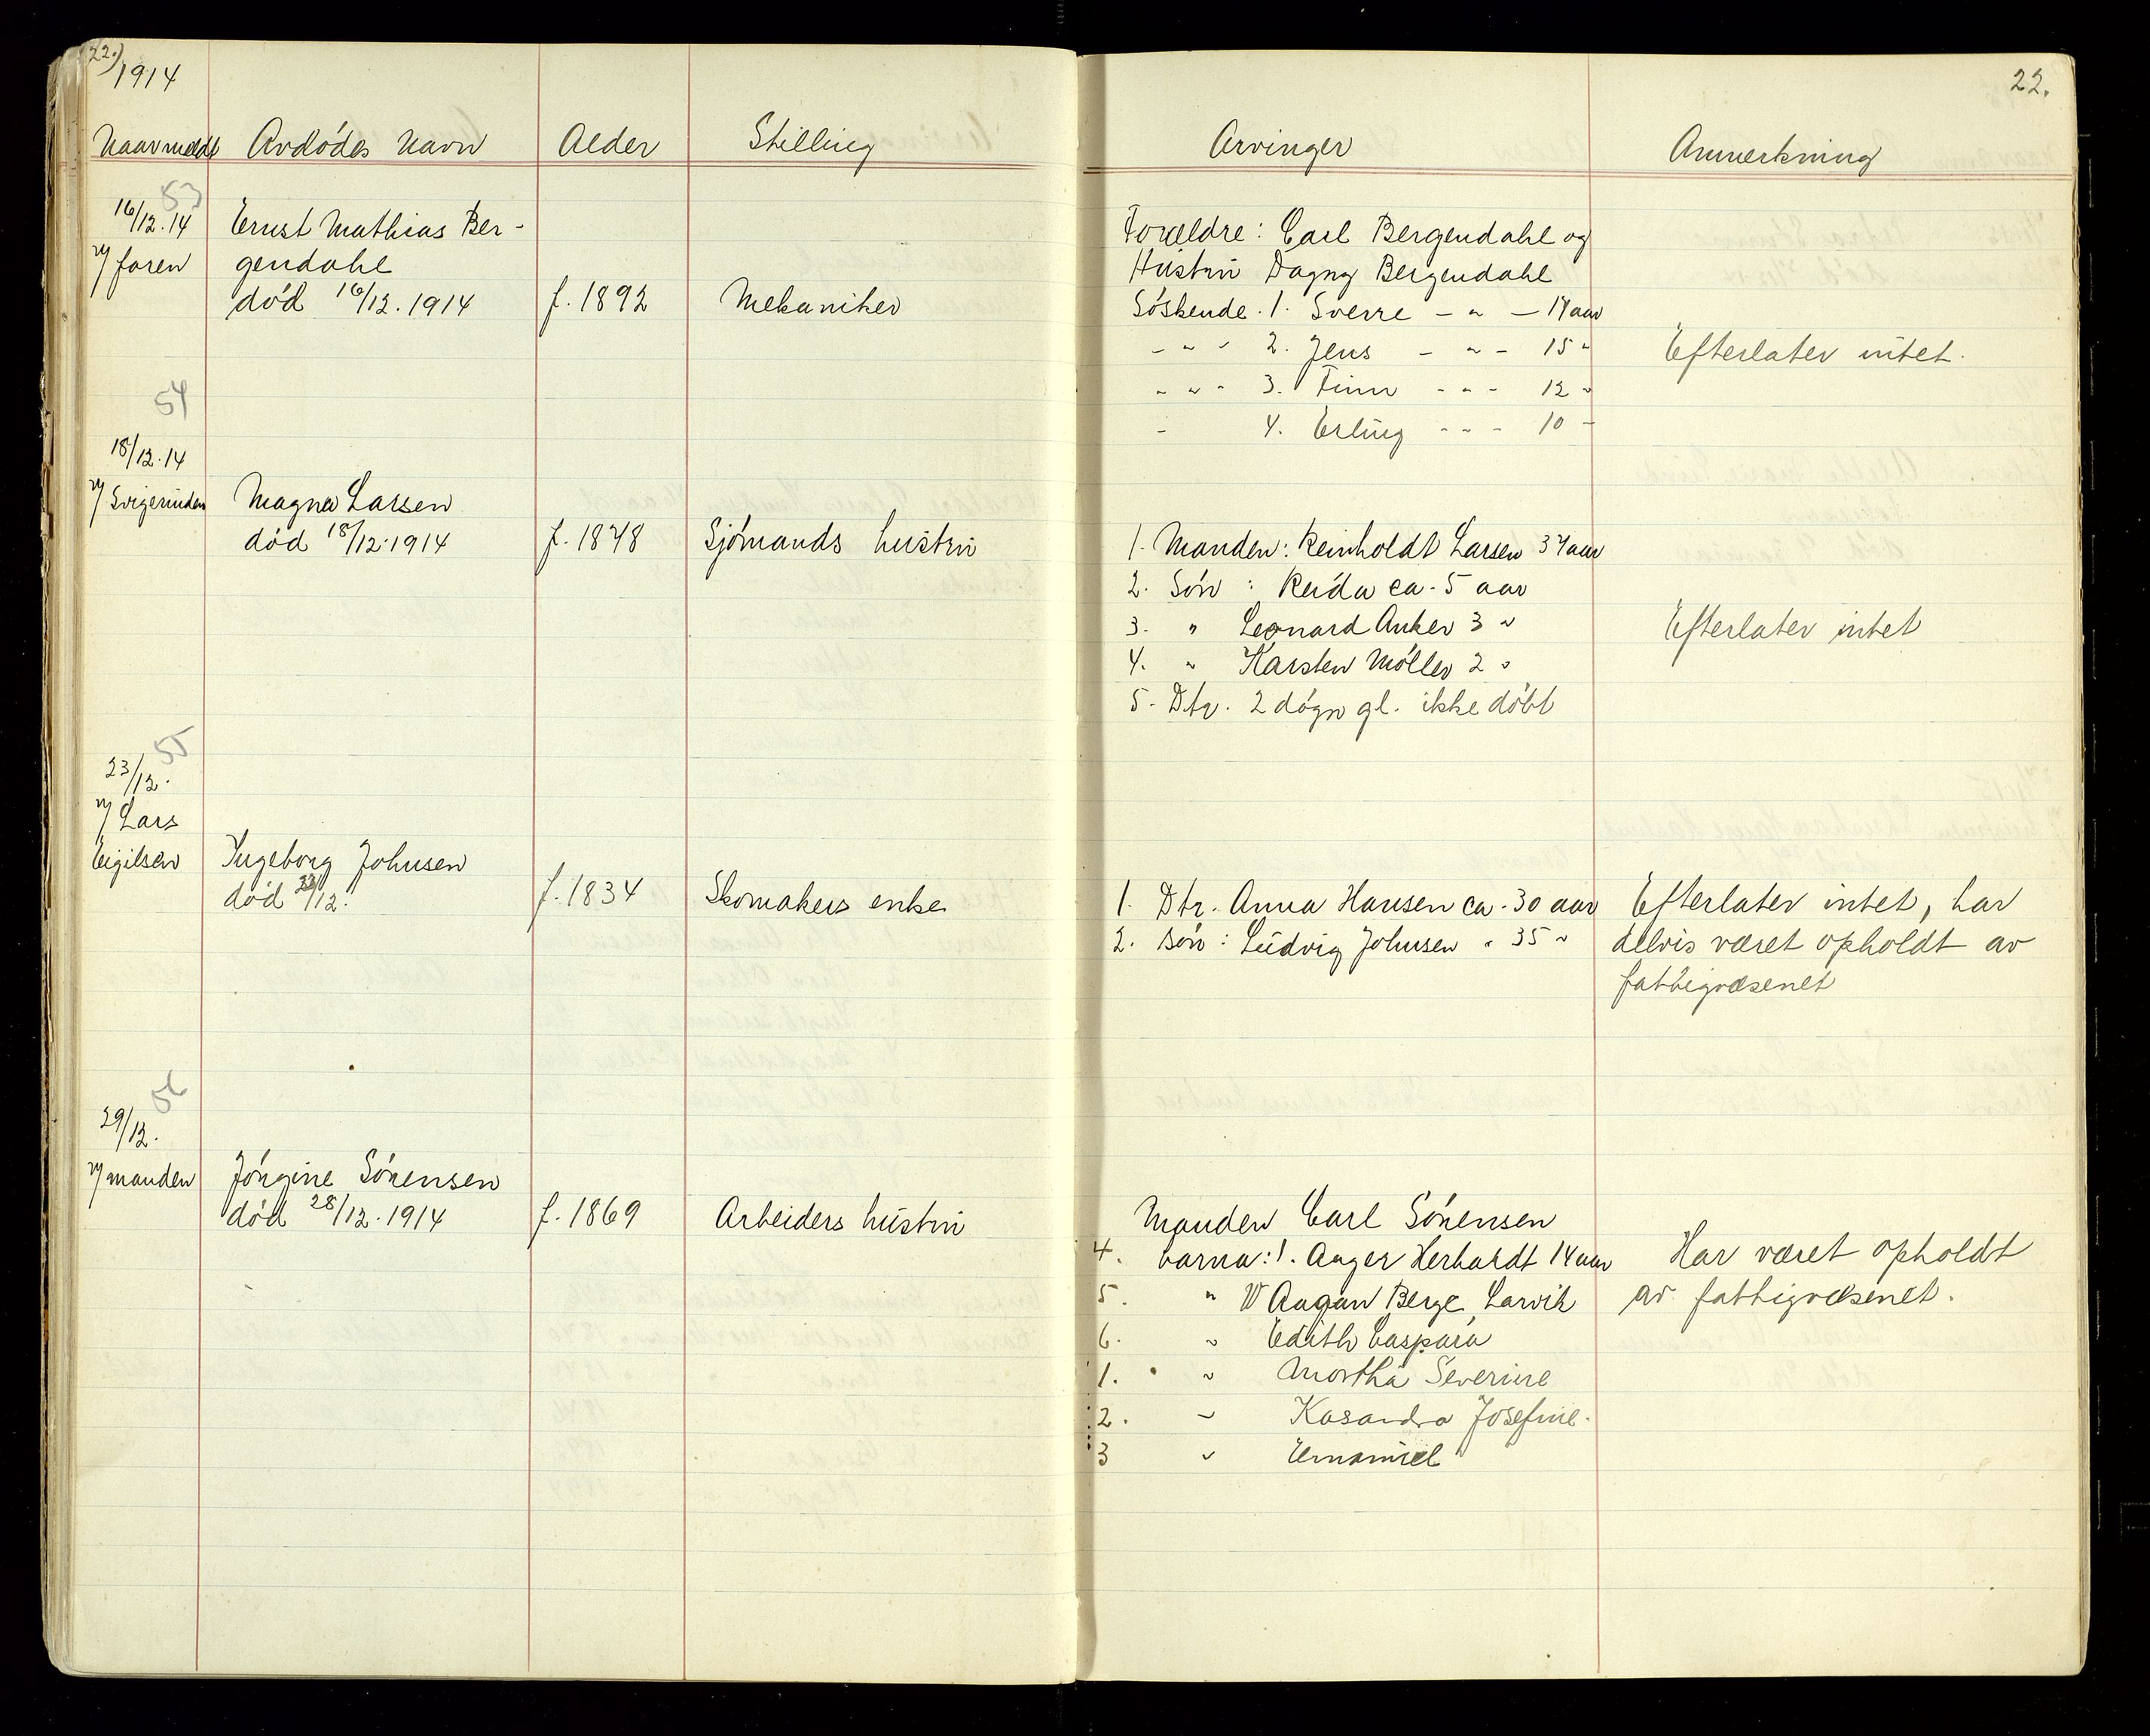 22.)
1914
22.
Naar meldt Avdödes Navn Alder Stilling Arvinger Anmerkning
53
16/12.14 Ernst Mathias Ber-
v/ faren gendahl
död 16/12.1914 f. 1892 Mekaniker
Forældre: Carl Bergendahl og
Hustru Dagny Bergendahl
Söskende. 1. Sverre - " - 17 aar
- " - 2. Jens - " - 15 "
Efterlater intet.
- " - 3. Finn - " - 12 "
- 4. Erling - " - 10 -
54
18/12.14
v/ Svigerinden Magna Larsen
död 18/12.1914 f. 1878 Sjömands hustru
1. Manden: Reinholdt Larsen 37 aar
2. Sön : Reida ca. 5 aar
3. " Leonard Anker 3 "
Efterlater intet
4. " Karsten Möller 2 "
5. Dtr. 2 dögn gl. ikke döbt
55
23/12.
v/ Lars
Eigilsen Ingeborg Johnsen
död 22/12. f. 1834 Skomakers enke
1. Dtr. Anna Hansen ca. 30 aar Efterlater intet, har
2. Sön : Ludvig Johnsen " 35 " delvis været opholdt av
fattigvæsenet
56
29/12.
v/ manden Jörgine Sörensen
död 28/12.1914 f. 1869 Arbeiders hustru
Manden Carl Sörensen
4. barna: 1. Aager Herhardt 14 aar Har været opholdt
5. " Aagan Berge, Larvik av fattigvæsenet.
6. " Edith Caspara
1. " Mortha Severine
2. " Kasandra Josefine.
3 " Emanuel